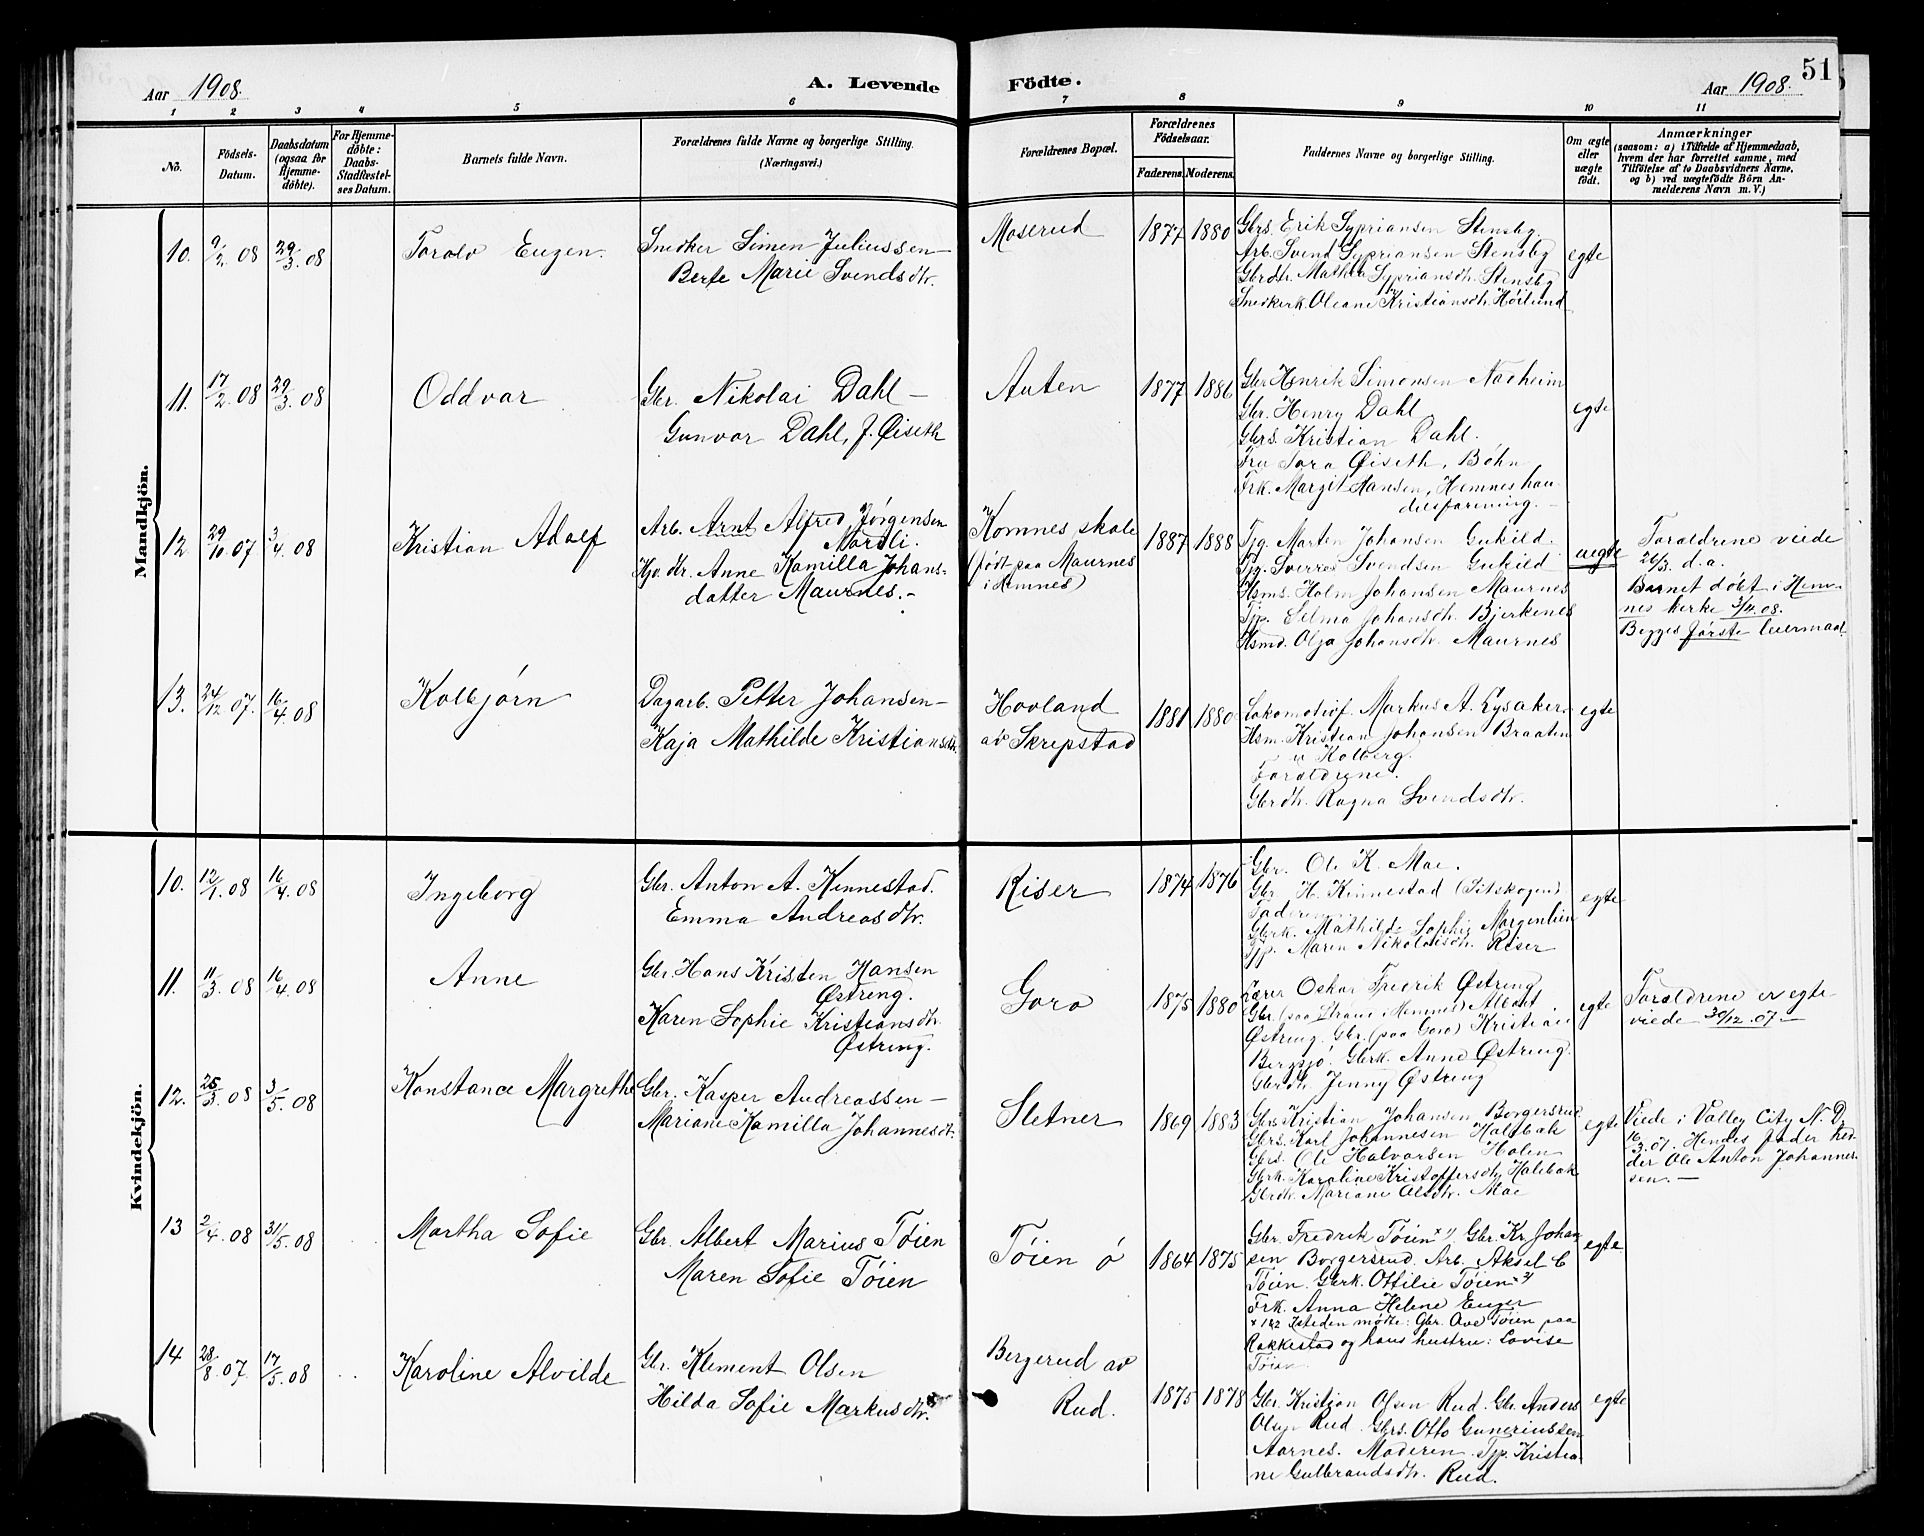 Aar 1908.
A. Levende Födte.
Aar 1908.
51
1 2 3 4 5 6 7 8 9 10 11
No.
Födsels-
Datum.
Daabsdatum
(ogsaa for
Hjemme-
döbte).
For Hjemme-
döbte:
Daabs-
Stadfæstel-
ses Datum.
Barnets fulde Navn.
Forældrenes fulde Navne og borgerlige Stilling.
(Næringsvei.)
Forældrenes Bopæl.
Forældrenes
Födselsaar.
Faderens. Moderens.
Faddernes Navne og borgerlige Stilling.
Om ægte
eller
uægte
født.
Anmærkninger
(saasom: a) i Tilfælde af Hjemmedaab,
hvem der har forrettet samme, med
Tilföielse af to Daabsvidners Navne,
og b) ved uægtefödte Börn An-
melderens Navn m. V.)
Mandkjön.
10. 9/2 08 29/3 08
Torolv Eugen.
Snedker Simen Juliussen –
Berte Marie Svendsdtr.
Moserud
1877 1880
Gbrs. Erik Sypriansen Stensby.
Arb. Svend Sypriansen Stensby
Gbrdtr. Mathea Sypriansdtr. Stensby
Snedkerk. Oleane Kristiansdtr. Høilund
egte
11. 17/2 08 29/3 08
Oddvar
Gbr. Nikolai Dahl –
Gunvor Dahl, f. Øiseth
Auten
1877 1886
Gbr. Henrik Simensen Nadheim
Gbr. Henry Dahl
Gbrs. Kristian Dahl.
Fru Sara Øiseth, Böhn
Frk. Margit Hansen, Hemnes han-
delsforening. –
egte
12 29/10 07 3/4 08
Kristian Adolf
Arb. Arnt Alfred Jørgensen
Mordli.
Hjv. dtr. Anne Kamilla Johans-
datter Maurnes. –
Komnes skole
(født paa Maurnes
i Hemnes)
1887 1888
Tjg. Morten Johansen Gukild.
Tjg. Sverres Svendsen Gukild
Hsms. Holm Johansen Maurnes
Tjp. Selma Johansdtr. Bjerkenes
Hsmd. Olga Johansdtr. Maurnes
uegte
Forældrene viede
26/3. d. a.
Barnet døbt i Hem-
nes kirke 3/4 08.
Begges første leiermaal
13. 24/12 07. 16/4 08
Kolbjørn
Dagarb. Petter Johansen –
Kaja Mathilde Kristiansdtr.
Hovland
av Skrepstad
1881 1880
Lokomotivf. Markus A. Lysaker.
Hsm. Kristian Johansen Braaten
u Kolberg.
Forældrene.
Gbrdtr. Ragna Svendsdtr.
egte
Kvindekjön.
10. 12/1 08 16/4 08
Ingeborg
Gbr. Anton A. Kinnestad.
Emma Andreasdtr.
Riser
1874 1876
Gbr. Ole K. Moe.
Gbr. H. Kinnestad
Faderen
Gbrk. Mathilde Sophie Morgenlien
Tjp. Maren Nikolaisdtr. Riser
egte
11. 11/3 08 16/4 08
Anne
Gbr. Hans Kristen Hansen
Østreng.
Karen Sophie Kristiansdtr.
Østreng.
Goro
1875 1880
Lærer Oskar Fredrik Østreng
Gbr. (paa Strane i Hemnes) Albert
Østreng. Gbr. (paa Goro) Kristian
Bergsjø. Gbrk. Anne Østreng.
Gbrdtr. Jenny Østreng
egte
Forældrene er egte-
viede 30/12. 07. –
12. 25/3 08 3/5 08
Konstance Margrethe
Gbr. Kasper Andreassen –
Mariane Kamilla Johannesdtr.
Sletner
1869 1883
Gbrs Kristian Johansen Borgersrud
Gbrs. Karl Johannesen Holsbak
Gbrs. Ole Halvorsen Holen
Gbrk. Karoline Kristoffersdtr. Holsbak
Gbrdtr. Mariane Olsdtr. Moe
egte
Viede i Valley City N. D.
16/3 07. Hendes fader hed-
der Ole Anton Johannes-
sen. –
13 2/4 08 31/5 08
Martha Sofie
Gbr. Albert Marius Tøien
Maren Sofie Tøien
Tøien ø
1864 1875
Gbr. Fredrik Tøien x1) Gbr. Kr. Johan-
sen Borgersrud. Arb. Aksel C
Tøien. Gbrk. Ottilie Tøien x2)
Frk. Anna Helene Enger
x 1&2 Isteden møtte: Gbr. Ave Tøien paa
Rakkestad og hans hustru: Lovise
Tøien
egte
14 28/8 07. 17/5 08
Karoline Alvilde
Gbr. Klement Olsen
Hilda Sofie Markusdtr.
Bergerud av
Rud.
1875 1878
Gbr. Kristian Olsen Rud. Gbr. Anders
Olsen Rud. Gbrs. Otto Guneriussen
Aarnes. Moderen. Tjp. Kristia-
ne Gulbrandsdtr. Rud.
egte